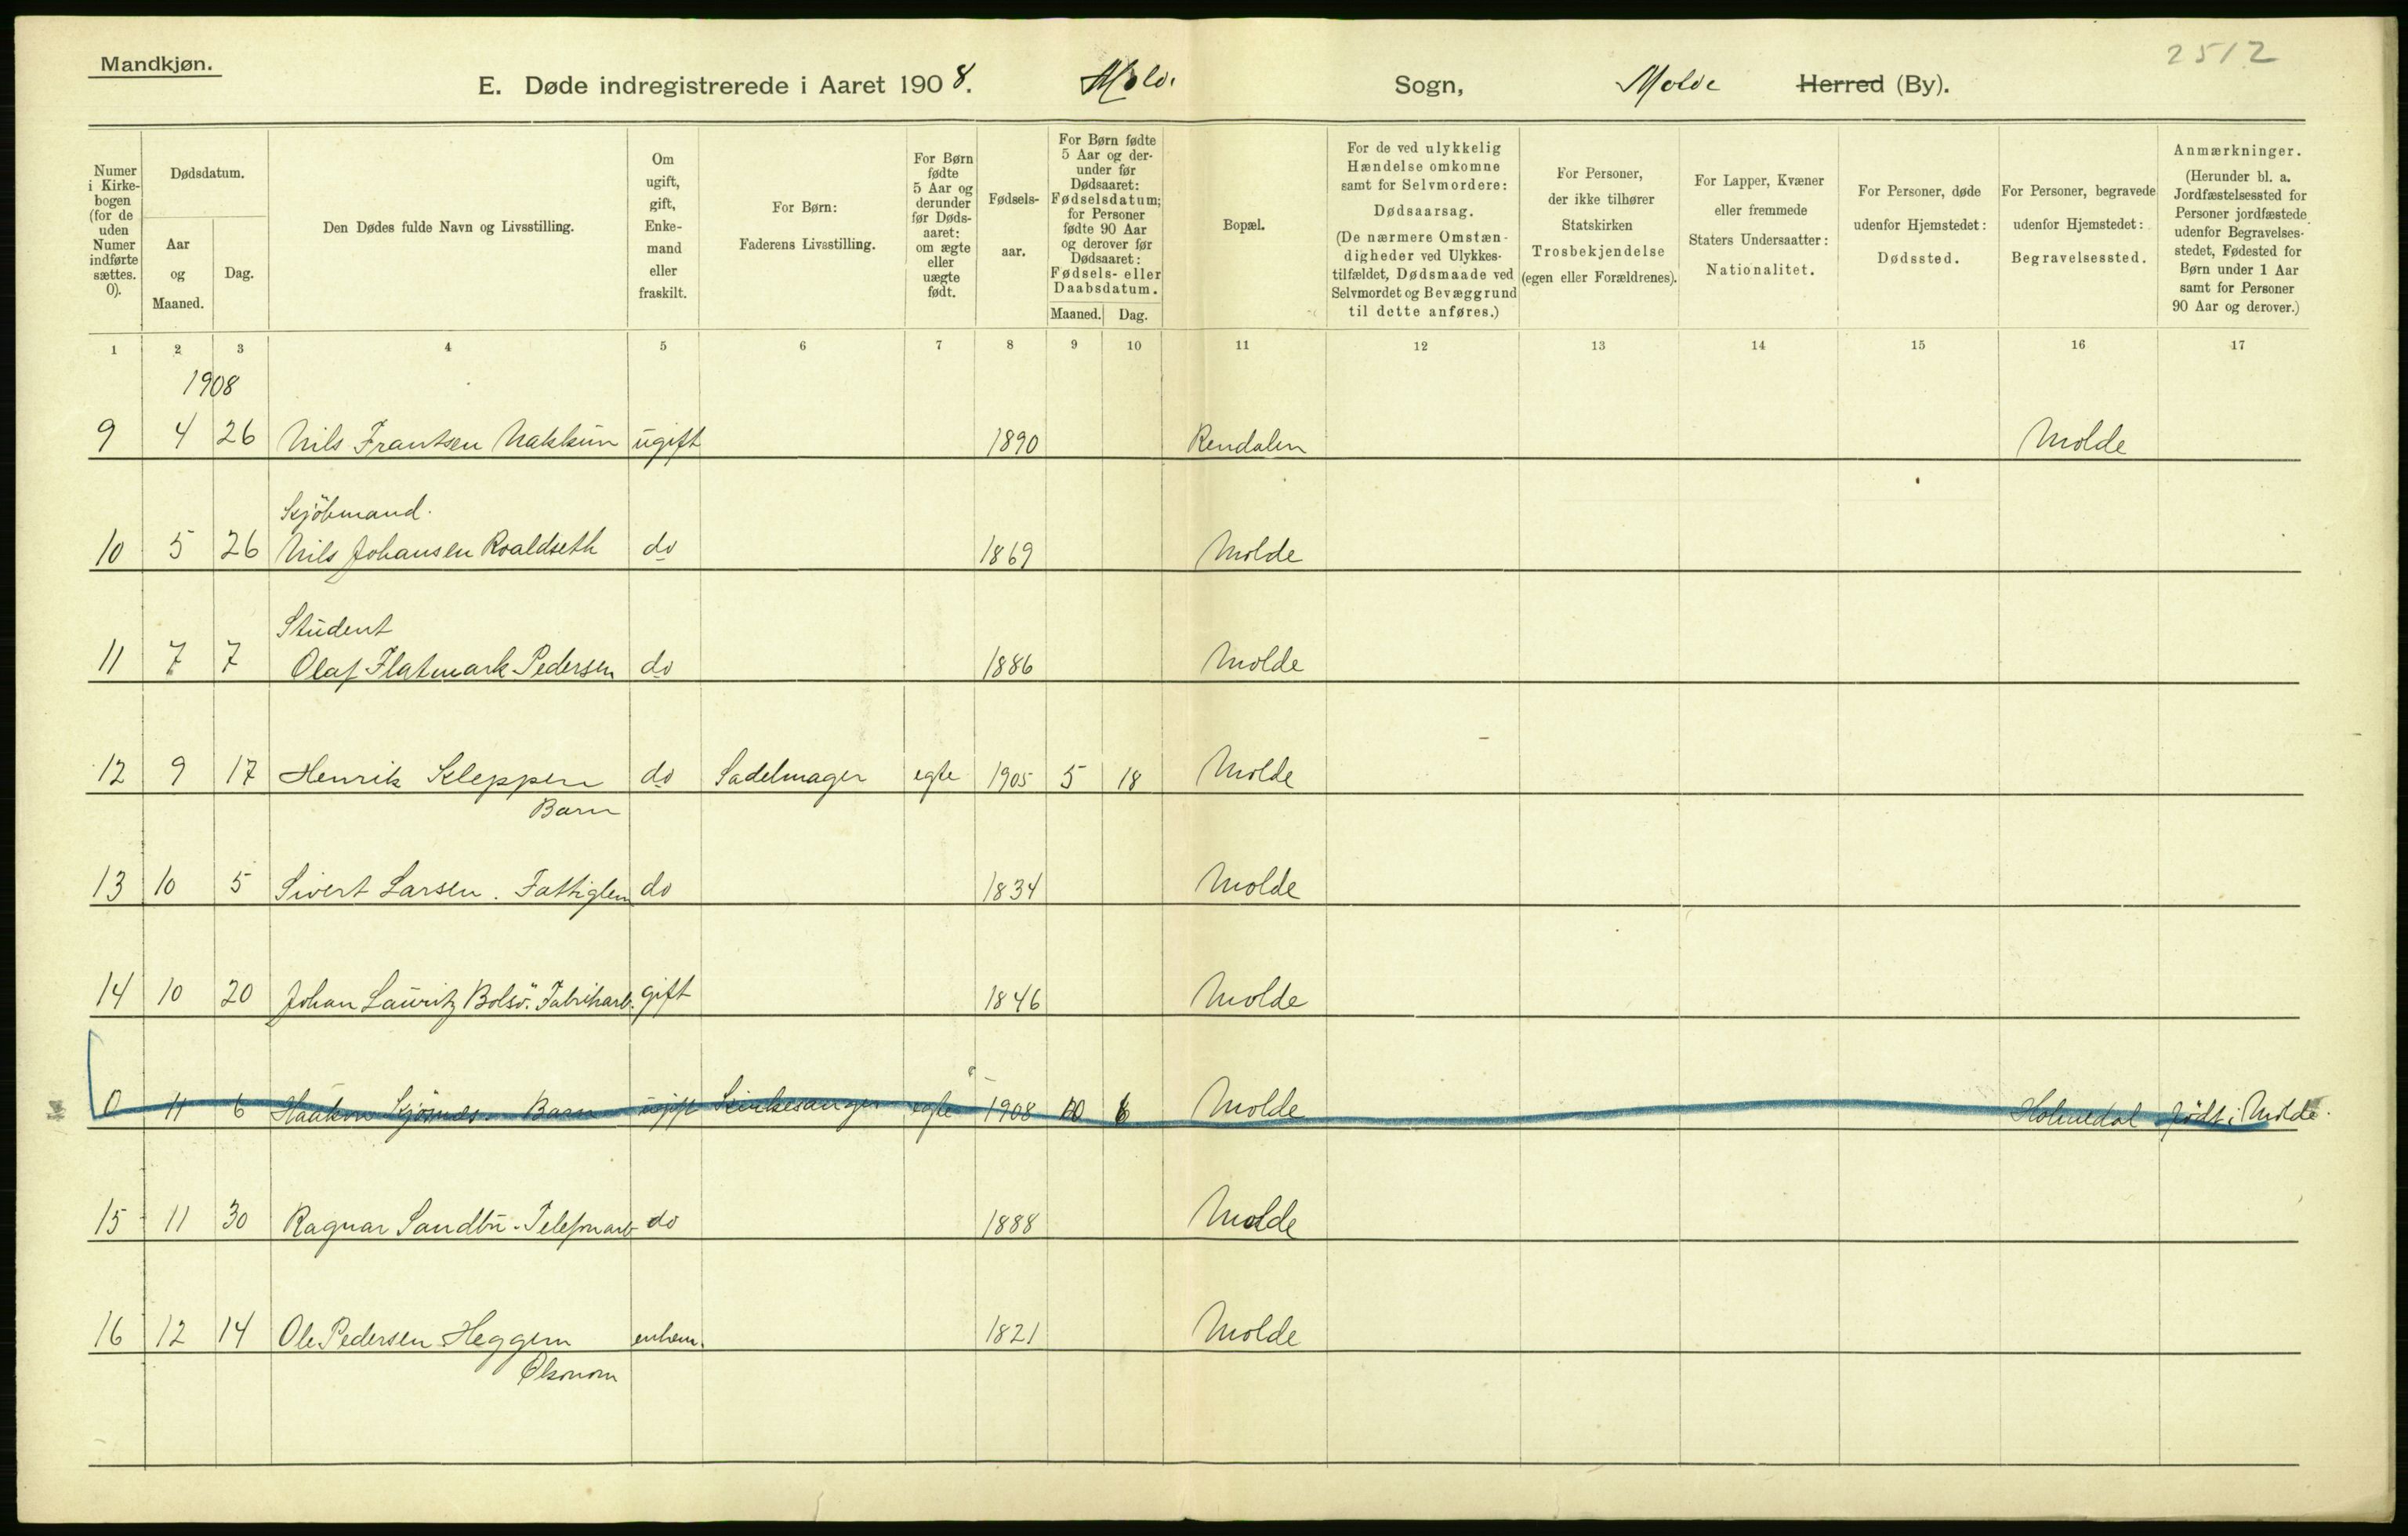 2512
Mandkjøn.
E. Døde indregistrerede i Aaret 1908. Molde Sogn, Molde Herred (By).
Numer i Kirke-bogen (for de uden Numer indførte sættes. 0).
Dødsdatum.
Aar og Maaned.
Dag.
Den Dødes fulde Navn og Livsstilling.
Om ugift, gift, Enke-mand eller fraskilt.
For Børn: Faderens Livsstilling.
For Børn fødte 5 Aar og derunder før Døds-aaret: om ægte eller uægte født.
Fødsels-aar.
For Børn fødte 5 Aar og der-under før Dødsaaret: Fødselsdatum; for Personer fødte 90 Aar og derover før Dødsaaret: Fødsels- eller Daabsdatum.
Maaned. Dag.
Bopæl.
For de ved ulykkelig Hændelse omkomne samt for Selvmordere: Dødsaarsag. (De nærmere Omstæn-digheder ved Ulykkes-tilfældet, Dødsmaade ved Selvmordet og Bevæggrund til dette anføres.)
For Personer, der ikke tilhører Statskirken Trosbekjendelse (egen eller Forældrenes).
For Lapper, Kvæner eller fremmede Staters Undersaatter: Nationalitet.
For Personer, døde udenfor Hjemstedet: Dødssted.
For Personer, begravede udenfor Hjemstedet: Begravelsessted.
Anmærkninger. (Herunder bl. a. Jordfæstelsessted for Personer jordfæstede udenfor Begravelses-stedet, Fødested for Børn under 1 Aar samt for Personer 90 Aar og derover.)
1 2 3 4 5 6 7 8 9 10 11 12 13 14 15 16 17
1908
9 4 26 Nils Frantsen Nakkün ugift 1890 Rendalen Molde
Kjöbmand.
10 5 26 Nils Johansen Roaldseth do 1869 Molde
Student
11 7 7 Olaf Flatmark Pedersen do 1886 Molde
12 9 17 Henrik Kleppen do Sadelmager egte 1905 5 18 Molde
Barn
13 10 5 Sivert Larsen. Fattiglem do 1834 Molde
14 10 20 Johan Lauritz Bolsö. Fabrikarb. gift 1846 Molde
0 11 6 Haakon Barn ugift Kirkesanger egte 1908 10 6 Molde Holmedal født i Molde.
15 11 30 Ragnar Sandbu. Telefonarb do 1888 Molde
16 12 14 Ole Pedersen Heggem enkem. 1821 Molde
Økonom